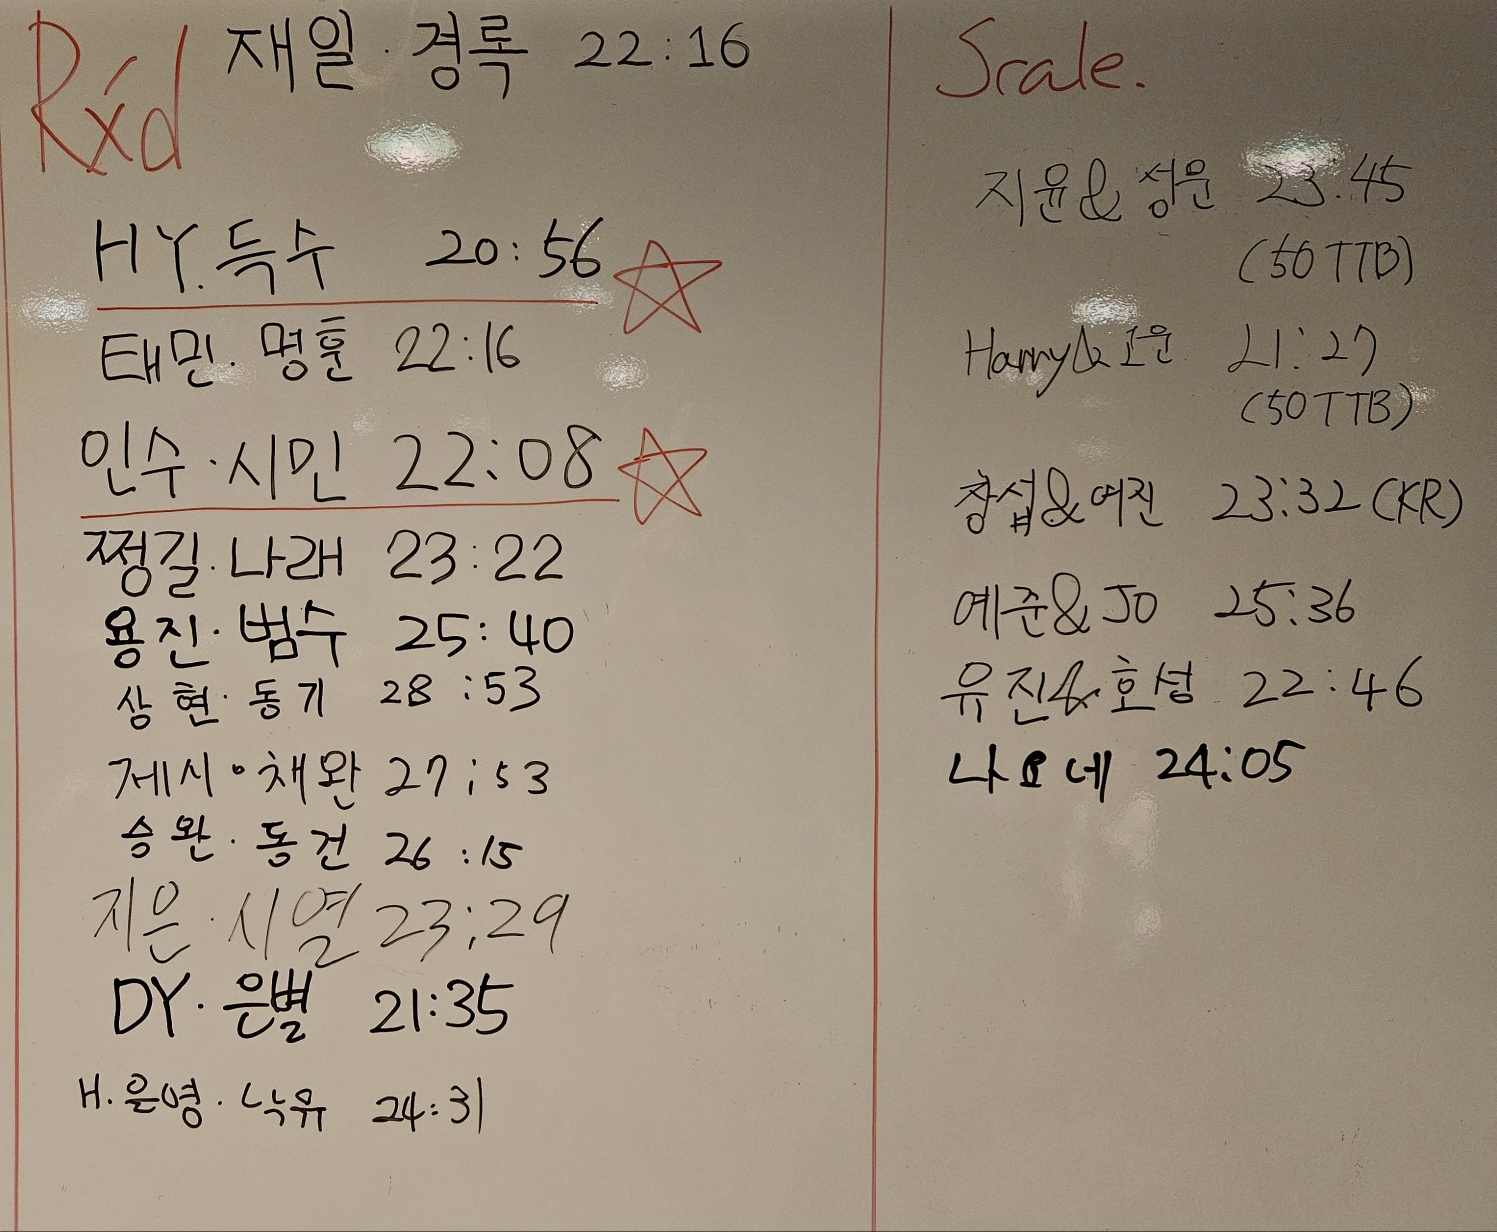 Rx'd
재일·경록 22:16
HY.득수 20:56
태민·명훈 22:16
인수·시민 22:08
쩡길·나래 23:22
용진·범수 25:40
상현·동기 28:53
제시·채완 27;53
승완·동건 26:15
지은·시열 23;29
DY·은별 21:35
H.은영·낙유 24:31
Scale.
지윤&성운 23:45
(50TTB)
Harry&고운 21:27
(50TTB)
창섭&여진 23:32(KR)
예준&JO 25:36
유진&호성 22:46
나요네 24:05